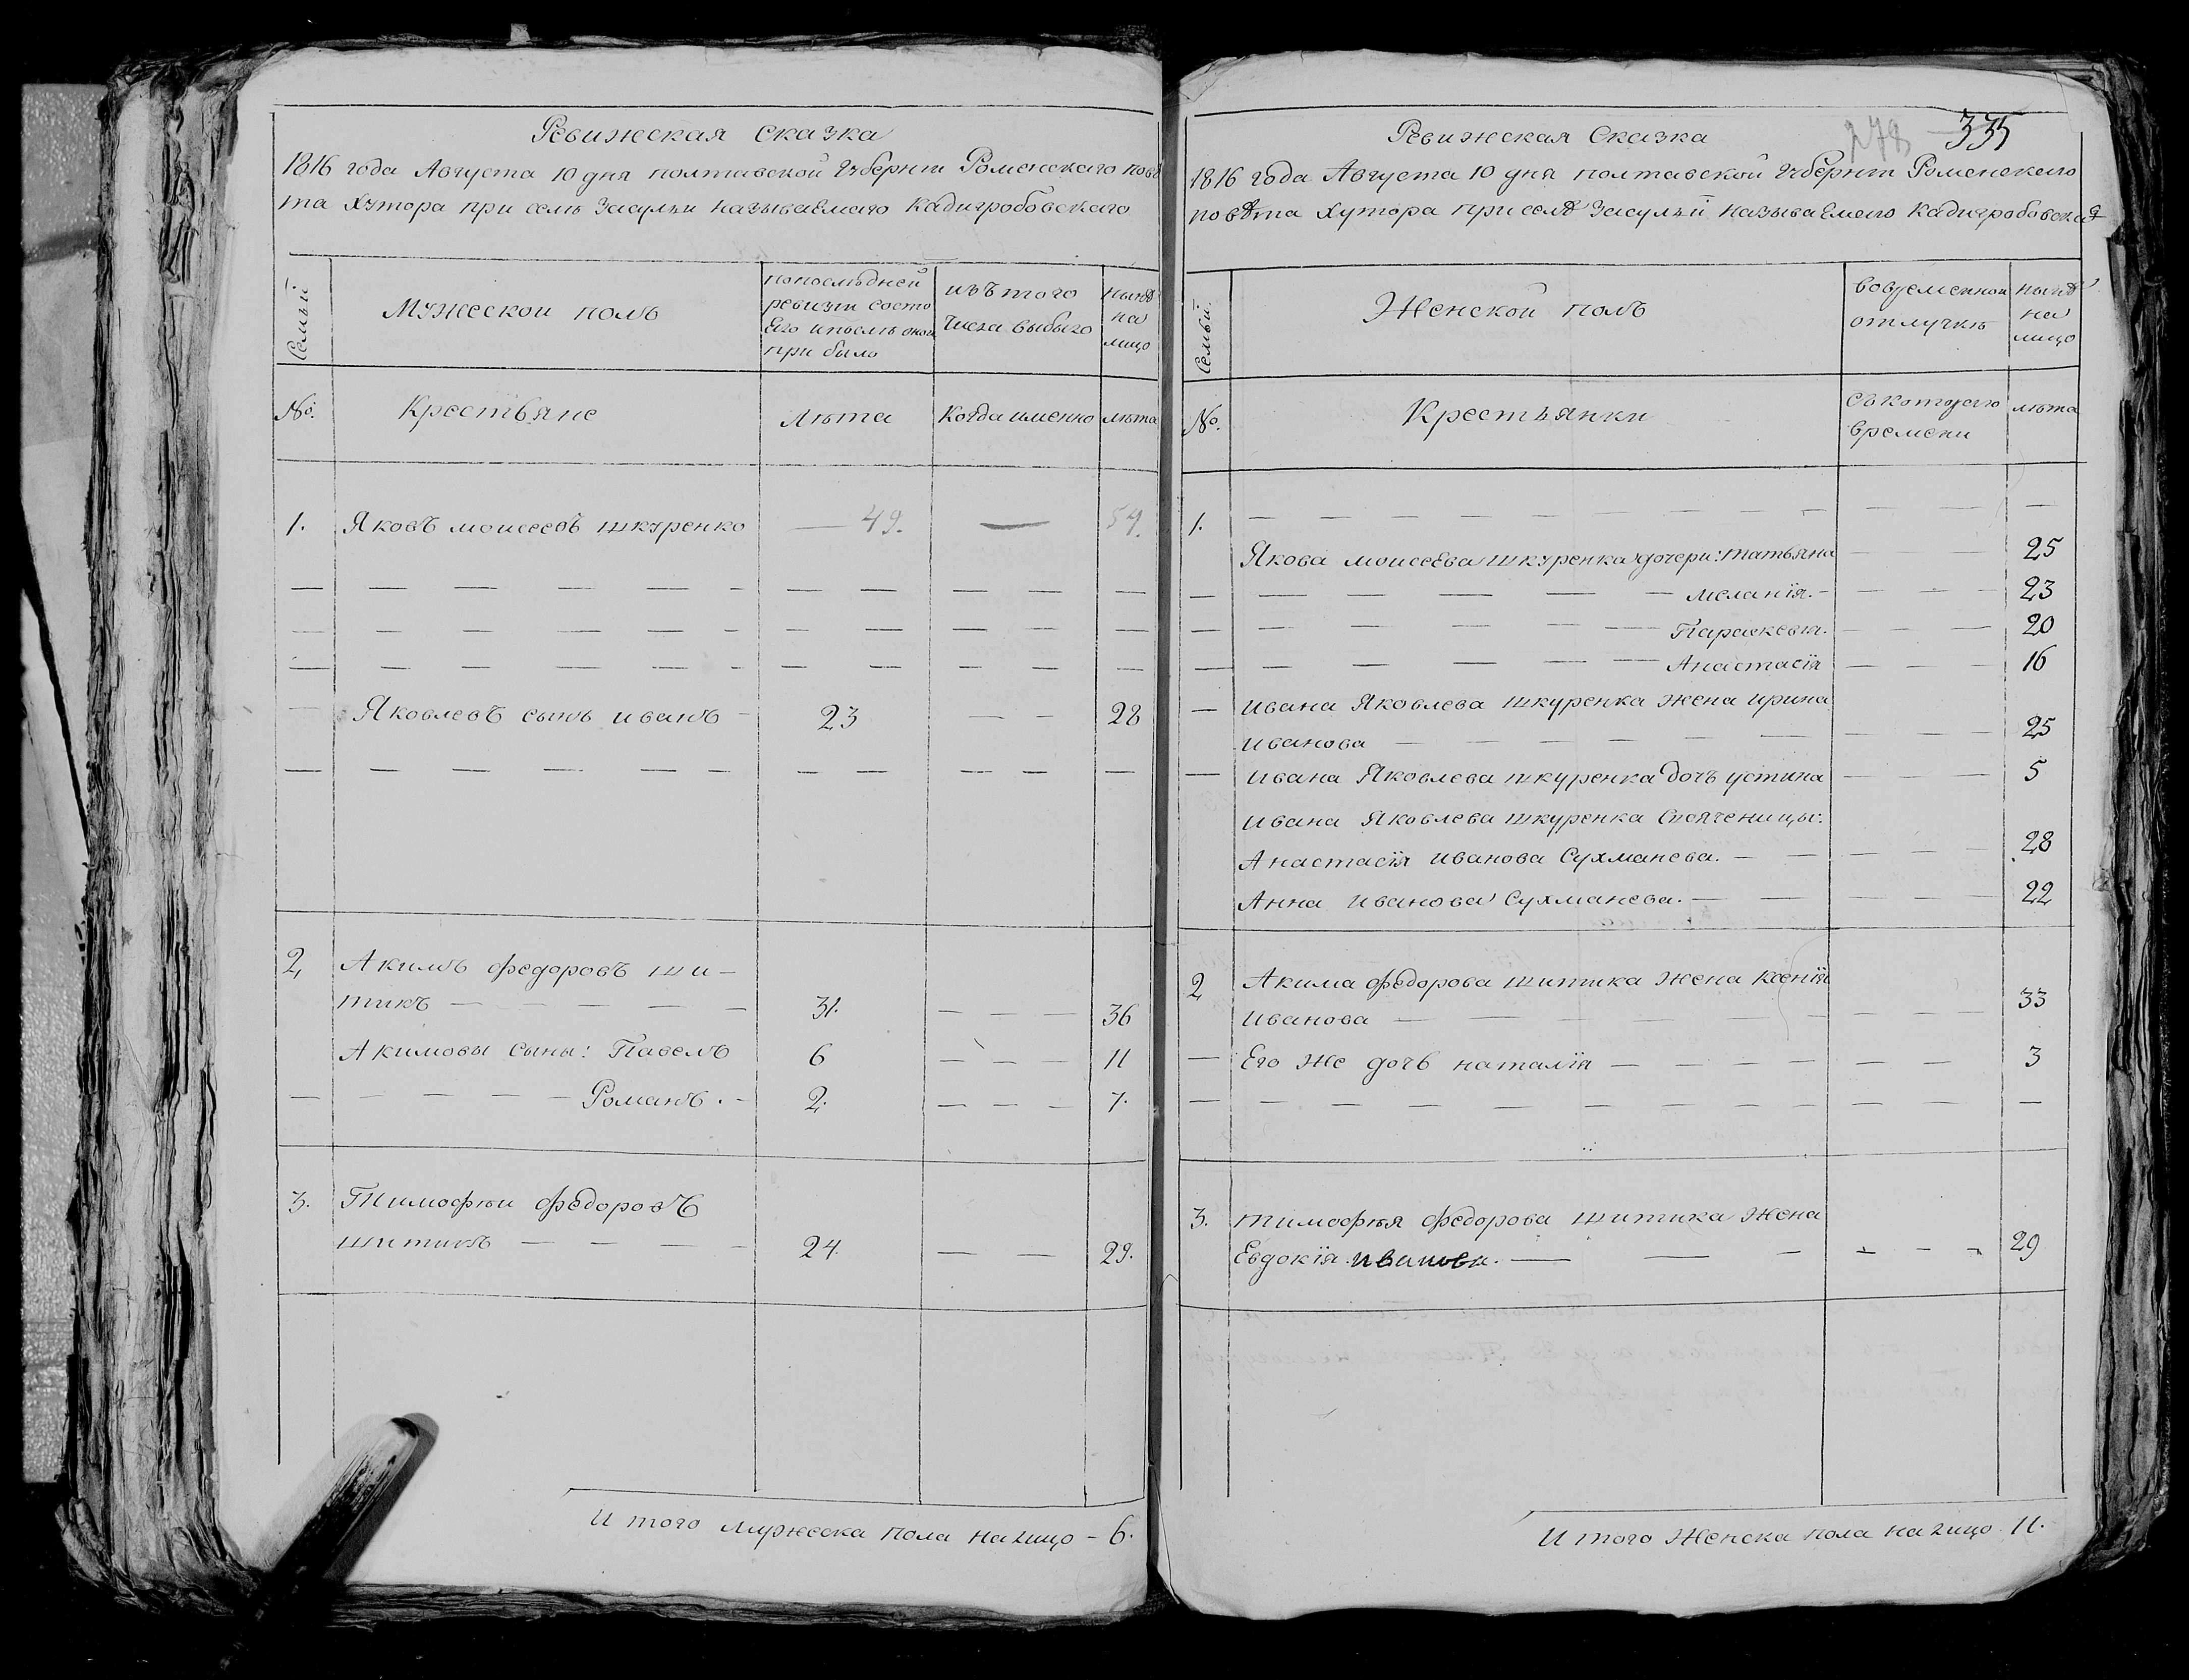 Ревижская сказка
1816 года Августа 10 дня полтавской Губернии Роменского повѣ
та Хутора при селѣ Засульи называемаго Кадигробовского
Семьи
Мужеской полъ
попослѣдней
ревизіи состо
ло и послѣ оной
при было
изъ того
Числа выбыло
нынѣ
на
лицо
№.
Крестьяне
Лѣта
Когда именно
лѣта
1. Яковъ моисеевъ шкуренко — 49. — 54.
Яковлевъ сынъ иванъ 23 — — 28
2, Акимъ федоровъ ши-
тикъ — — — — — 31. — — — 36
Акимовы сыны: Павелъ 6 — — — 11
— — — — — Романъ. - 2. — — — 7.
3. Тимофѣи федоровъ
шитикъ — — — — 24. — — 29.
И того мужеска пола налицо - 6.
278 335
Ревижская Сказка
1816 года Августа 10 дня полтавской Губерніи Роменского
повѣта хутора при селѣ Засульи называемого Кадигробовская
Семьи.
Женской полъ
вовременной
отлучкѣ
нынѣ
на
лицо
№.
Крестьянки
съкоторого
времени
лѣта
1.
Якова моисеева шкуренка дочери: татьяна — 25
— меланія. - 23
— Параскевія. 20
— Анастасія 16
— ивана Яковлева шкуренка жена ирина
иванова — 25
— ивана Яковлева шкуренка дочь устина 5
ивана Яковлева шкуренка Своячницы:
Анастасія иванова Сухманева. — 28
Анна иванова Сухманева. — 22
2 Акима федорова шитика жена ксенія
иванова — 33
— Его же дочь наталія — 3
3. тимофѣя федорова шитика жена
Евдокія иванова. — 29
И того женска пола налицо 11.